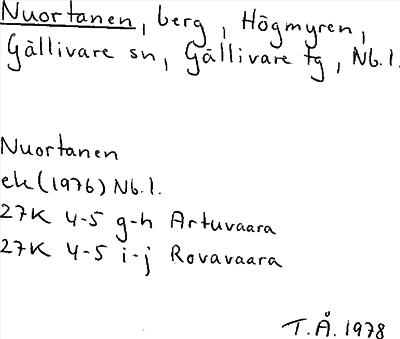 Nuortanen, berg, Högmyren,
Gällivare sn, Gällivare tg, Nb.l.
Nuortanen
ek (1976) Nb.l.
27K 4-5 g-h Artuvaara
27K 4-5 i-j Rovavaara
T.Å. 1978